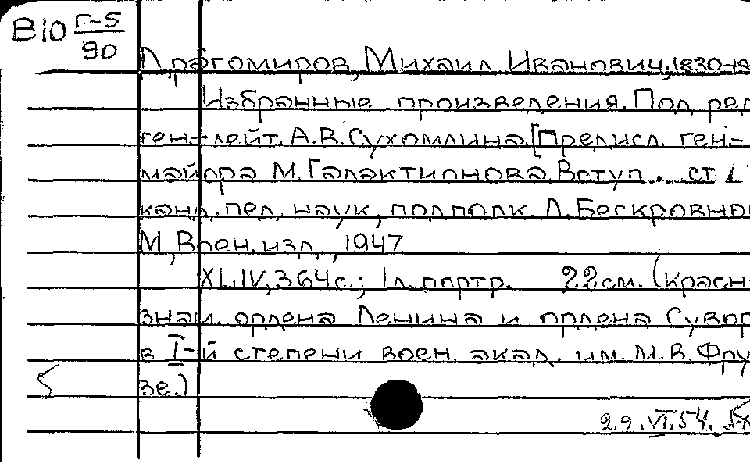 В10 Г-5
90
Драгомиров, Михаил Иванович, 1830-19
Избранные произведения. Под ред.
ген.-лейт. А.В.Сухомлина. [Предисл. ген-
майора М.Галактионова. Вступ. ст.
канд. пед. наук, подполк. Л.Бескровно
М, Воен.изд., 1947
XLIV, 364с.; 1л.портр. 22см. (Красн-
знам. ордена Ленина и ордена Сувор
в I-й степени воен. акад. им. М.В.Фру
зе.)
29.VI.54.